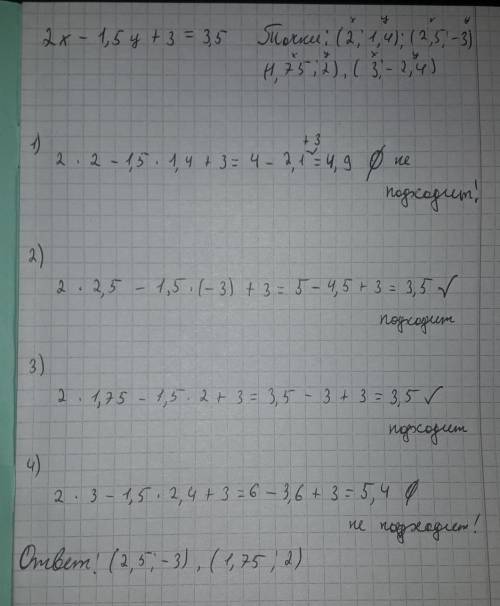 2x - 1,5y + 3 = 3,5 Точки: (2; 1,4); (2,5; -3)
(1,75; 2), (3; -2,4)
1)
2 · 2 - 1,5 · 1,4 + 3 = 4 - 2,1 +3 = 4,9 ∅ не
подходит!
2)
2 · 2,5 - 1,5 · (-3) + 3 = 5 - 4,5 + 3 = 3,5 ✓
подходит
3)
2 · 1,75 - 1,5 · 2 + 3 = 3,5 - 3 + 3 = 3,5 ✓
подходит
4)
2 · 3 - 1,5 · 2,4 + 3 = 6 - 3,6 + 3 = 5,4 ∅
не подходит!
Ответ: (2,5; -3), (1,75; 2)